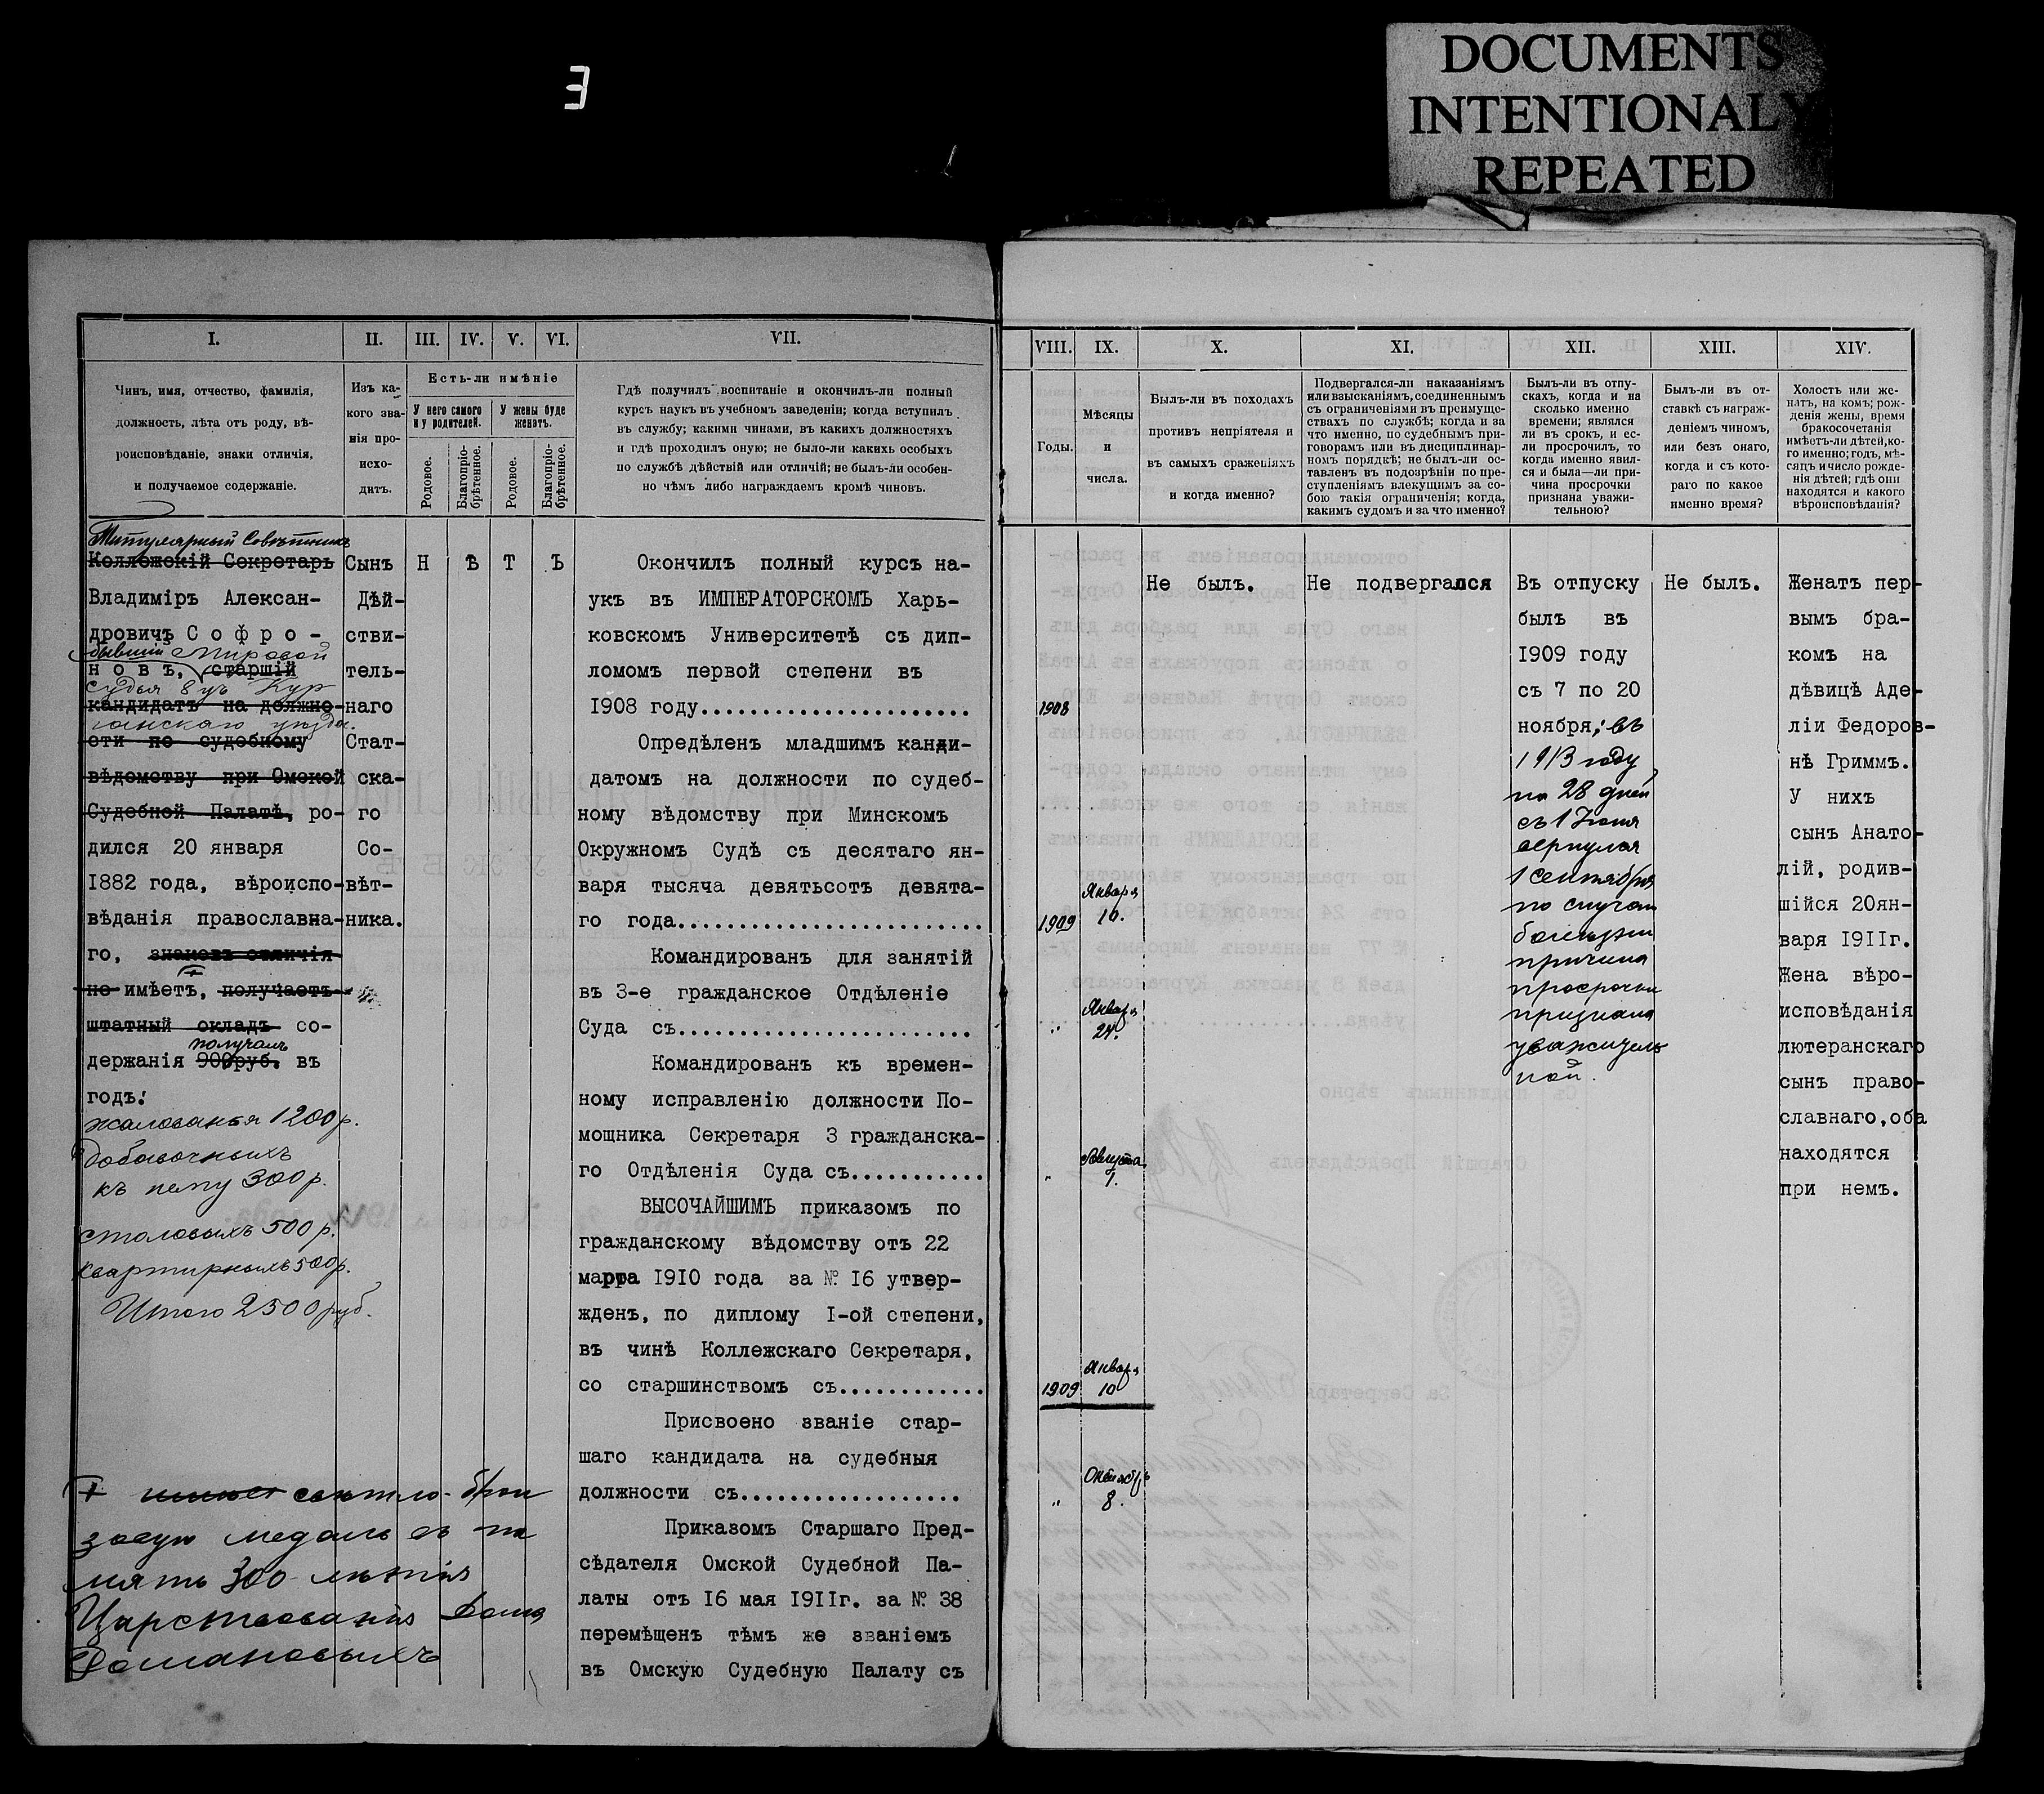 E
DOCUMENTS
INTENTIONALY
REPEATED
I.
II.
III.
IV.
V.
VI.
VII.
Чинъ, имя, отчество, фамилія,
должность, лѣта отъ роду, вѣ-
роисповѣданіе, знаки отличія,
и получаемое содержаніе.
Изъ ка-
кого зва-
нія про-
исхо-
дитъ.
Есть-ли имѣніе
У него самого
и у родителей.
У жены буде
женатъ.
Родовое.
Благопріо-
брѣтенное.
Родовое.
Благопріо-
брѣтенное.
Гдѣ получилъ воспитаніе и окончилъ-ли полный
курсъ наукъ въ учебномъ заведеніи; когда вступилъ
въ службу; какими чинами, въ какихъ должностяхъ
и гдѣ проходилъ оную; не было-ли какихъ особыхъ
по службѣ дѣйствій или отличій; не былъ-ли особен-
но чѣмъ либо награждаемъ кромѣ чиновъ.
Титулярный Совѣтникъ
Коллежскій Секретарь
Владиміръ Алексан-
дровичъ Софро-
бывшій Мировой
новъ, старшій
судья 8 уч. Кур
кандидатъ на должно-
ганскаго уѣзда.
сти по судебному
вѣдомству при Омской
Судебной Палатѣ, ро-
дился 20 января
1882 года, вѣроиспо-
вѣданія православна-
го, знаковъ отличія
не имѣетъ, получаетъ
штатный окладъ со-
получалъ
держанія 900руб. въ
годъ:
жалованья 1200 р.
добавочныхъ
къ нему 300 р.
столовыхъ 500 р.
квартирныхъ 500 р.
Итого 2500 руб.
+ имѣетъ свѣтло-брон
зовую медаль въ па
мять 300 лѣтія
Царствованія Дома
Романовыхъ
Сынъ
Дѣй-
стви-
тель-
наго
Стат-
ска-
го
Со-
вѣт-
ника.
Н Ѣ Т Ъ
Окончилъ полный курсъ на-
укъ въ ИМПЕРАТОРСКОМЪ Харь-
ковскомъ Университетѣ съ дип-
ломомъ первой степени въ
1908 году.......................
Опредѣленъ младшимъ канди-
датомъ на должности по судеб-
ному вѣдомству при Минскомъ
Окружномъ Судѣ съ десятаго ян-
варя тысяча девятьсотъ девята-
го года..........................
Командированъ для занятій
въ 3-е гражданское Отдѣленіе
Суда съ.........................
Командированъ къ времен-
ному исправленію должности По-
мощника Секретаря 3 гражданска-
го Отдѣленія Суда съ...........
ВЫСОЧАЙШИМЪ приказомъ по
гражданскому вѣдомству отъ 22
марта 1910 года за № 16 утвер-
жденъ, по диплому I-ой степени,
въ чинѣ Коллежскаго Секретаря,
со старшинствомъ съ............
Присвоено званіе стар-
шаго кандидата на судебныя
должности съ...................
Приказомъ Старшаго Пред-
сѣдателя Омской Судебной Па-
латы отъ 16 мая 1911г. за № 38
перемѣщенъ тѣмъ же званіемъ
въ Омскую Судебную Палату съ
VIII.
IX.
X.
XI.
XII.
XIII.
XIV.
Годы.
Мѣсяцы
и
числа.
Былъ-ли въ походахъ
противъ непріятеля и
въ самыхъ сраженіяхъ
и когда именно?
Подвергался-ли наказаніямъ
или взысканіямъ, соединеннымъ
съ ограниченіями въ преимуще-
ствахъ по службѣ; когда и за
что именно, по судебнымъ при-
говорамъ или въ дисциплинар-
номъ порядкѣ; не былъ-ли ос-
тавленъ въ подозрѣніи по пре-
ступленіямъ влекущимъ за со-
бою такія ограниченія; когда,
какимъ судомъ и за что именно?
Былъ-ли въ отпу-
скахъ, когда и на
сколько именно
времени; являлся
ли въ срокъ, и ес-
ли просрочилъ, то
когда именно явил-
ся и была—ли при-
чина просрочки
признана уважи-
тельною?
Былъ-ли въ от-
ставкѣ съ награж-
деніемъ чиномъ,
или безъ онаго,
когда и съ кото-
раго по какое
именно время?
Холостъ или же-
натъ, на комъ; рож-
денія жены, время
бракосочетанія
имѣетъ-ли дѣтей, ко-
го именно; годъ, мѣ-
сяцъ и число рожде-
нія дѣтей; гдѣ они
находятся и какого
вѣроисповѣданія?
1908
1909
Января
10.
"
Января
24.
"
Августа
1.
1909
Января
10
"
Октября
8.
Не былъ.
Не подвергался
Въ отпуску
былъ въ
1909 году
съ 7 по 20
ноября; въ
1913 году
на 28 дней
съ 1 Іюня
вернулся
1 сентября
по случаю
болѣзни
причина
просрочки
признана
уважитель
ной.
Не былъ.
Женатъ пер-
вымъ бра-
комъ на
дѣвицѣ Аде-
ліи Федоров-
нѣ Гриммъ.
У нихъ
сынъ Анато-
лій, родив-
шійся 20ян-
варя 1911г.
Жена вѣро-
исповѣданія
лютеранскаго
сынъ право-
славнаго, оба
находятся
при немъ.